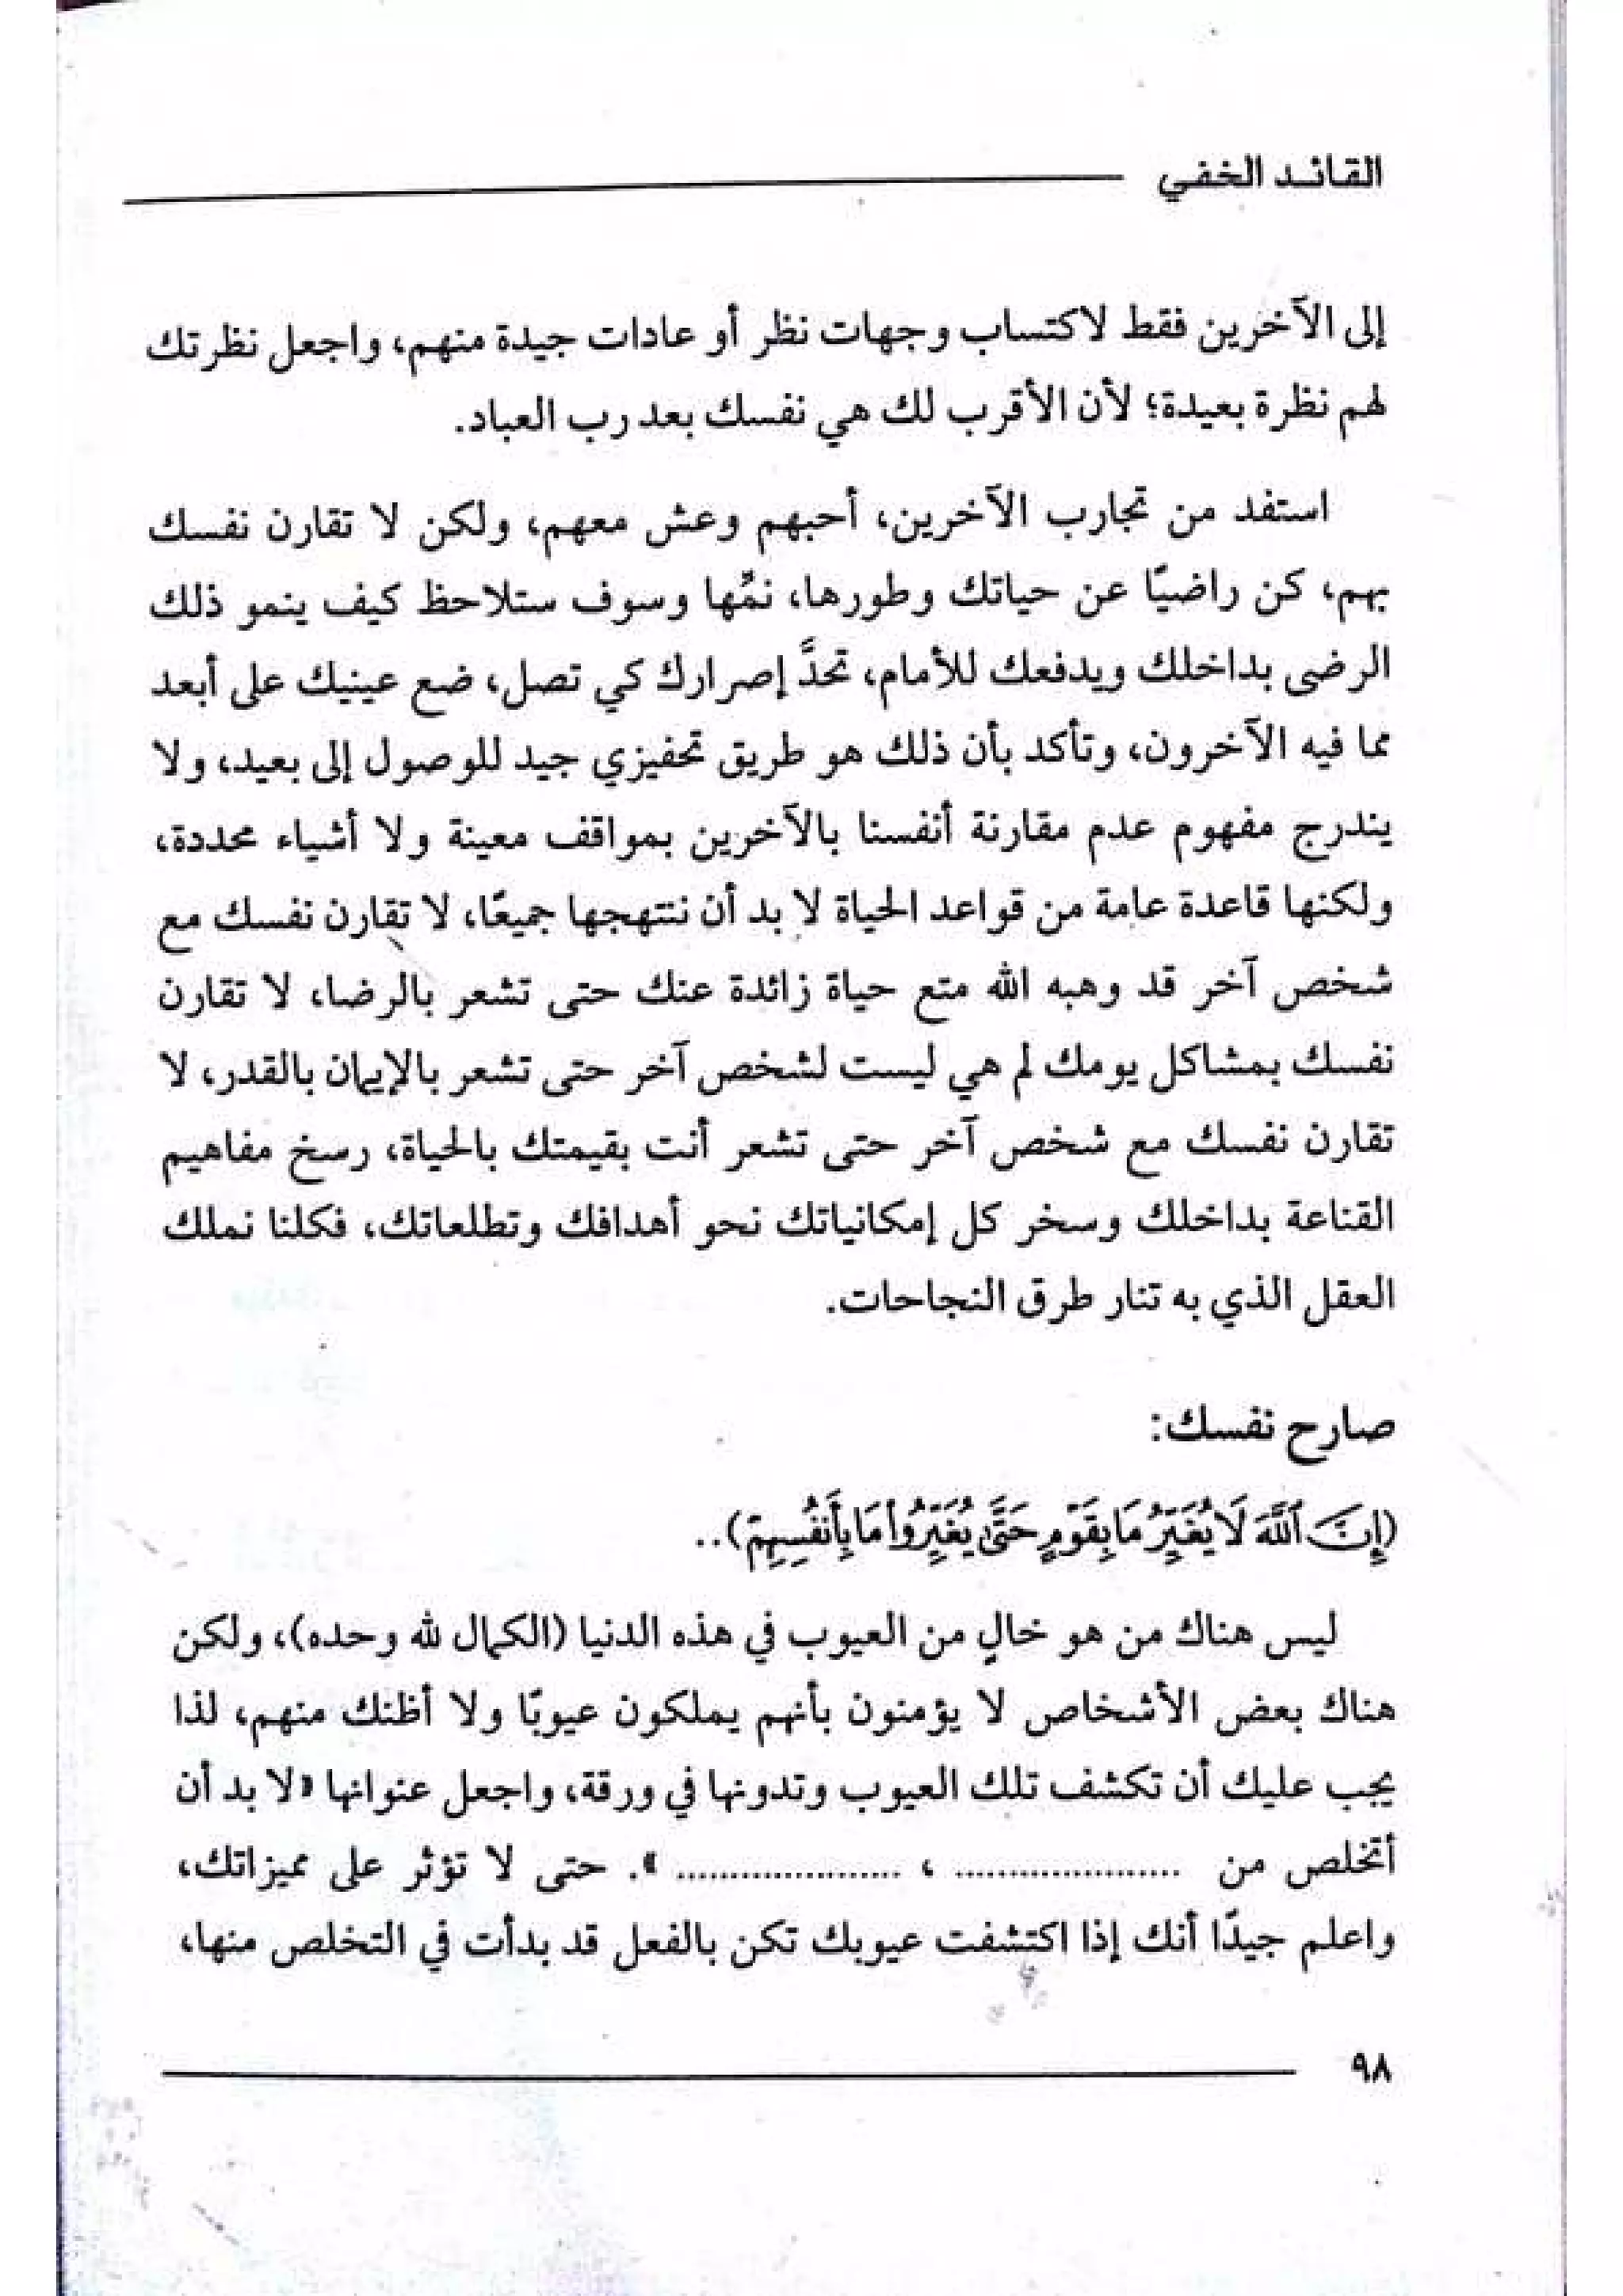 القائد الخفي
إلى الآخرين فقط لاكتساب وجهات نظر أو عادات جيدة منهم، واجعل نظرتك
لهم نظرة بعيدة؛ لأن الأقرب لك هي نفسك بعد رب العباد.
استفد من تجارب الآخرين، أحبهم وعش معهم، ولكن لا تقارن نفسك
بهم، كن راضيًا عن حياتك وطورها، نمِّها وسوف ستلاحظ كيف ينمو ذلك
الرضى بداخلك ويدفعك للأمام، تحدَّ إصرارك كي تصل، ضع عينيك على أبعد
مما فيه الآخرون، وتأكد بأن ذلك هو طريق تحفيزي جيد للوصول إلى بعيد، ولا
يندرج مفهوم عدم مقارنة أنفسنا بالآخرين بمواقف معينة ولا أشياء محددة،
ولكنها قاعدة عامة من قواعد الحياة لا بد أن ننتهجها جميعًا، لا تقارن نفسك مع
شخص آخر قد وهبه الله متع حياة زائدة عنك حتى تشعر بالرضا، لا تقارن
نفسك بمشاكل يومك لم هي ليست لشخص آخر حتى تشعر بالإيمان بالقدر، لا
تقارن نفسك مع شخص آخر حتى تشعر أنت بقيمتك بالحياة، رسخ مفاهيم
القناعة بداخلك وسخر كل إمكانياتك نحو أهدافك وتطلعاتك، فكلنا نملك
العقل الذي به تنار طرق النجاحات.
صارح نفسك:
(إِنَّ ٱللَّهَ لَا يُغَيِّرُ مَا بِقَوْمٍ حَتَّىٰ يُغَيِّرُوا۟ مَا بِأَنفُسِهِمْ)..
ليس هناك من هو خالٍ من العيوب في هذه الدنيا (الكمال لله وحده)، ولكن
هناك بعض الأشخاص لا يؤمنون بأنهم يملكون عيوبًا ولا أظنك منهم، لذا
يجب عليك أن تكشف تلك العيوب وتدونها في ورقة، واجعل عنوانها «لا بد أن
أتخلص من ..................... ، .....................». حتى لا تؤثر على مميزاتك،
واعلم جيدًا أنك إذا اكتشفت عيوبك تكن بالفعل قد بدأت في التخلص منها،
٩٨